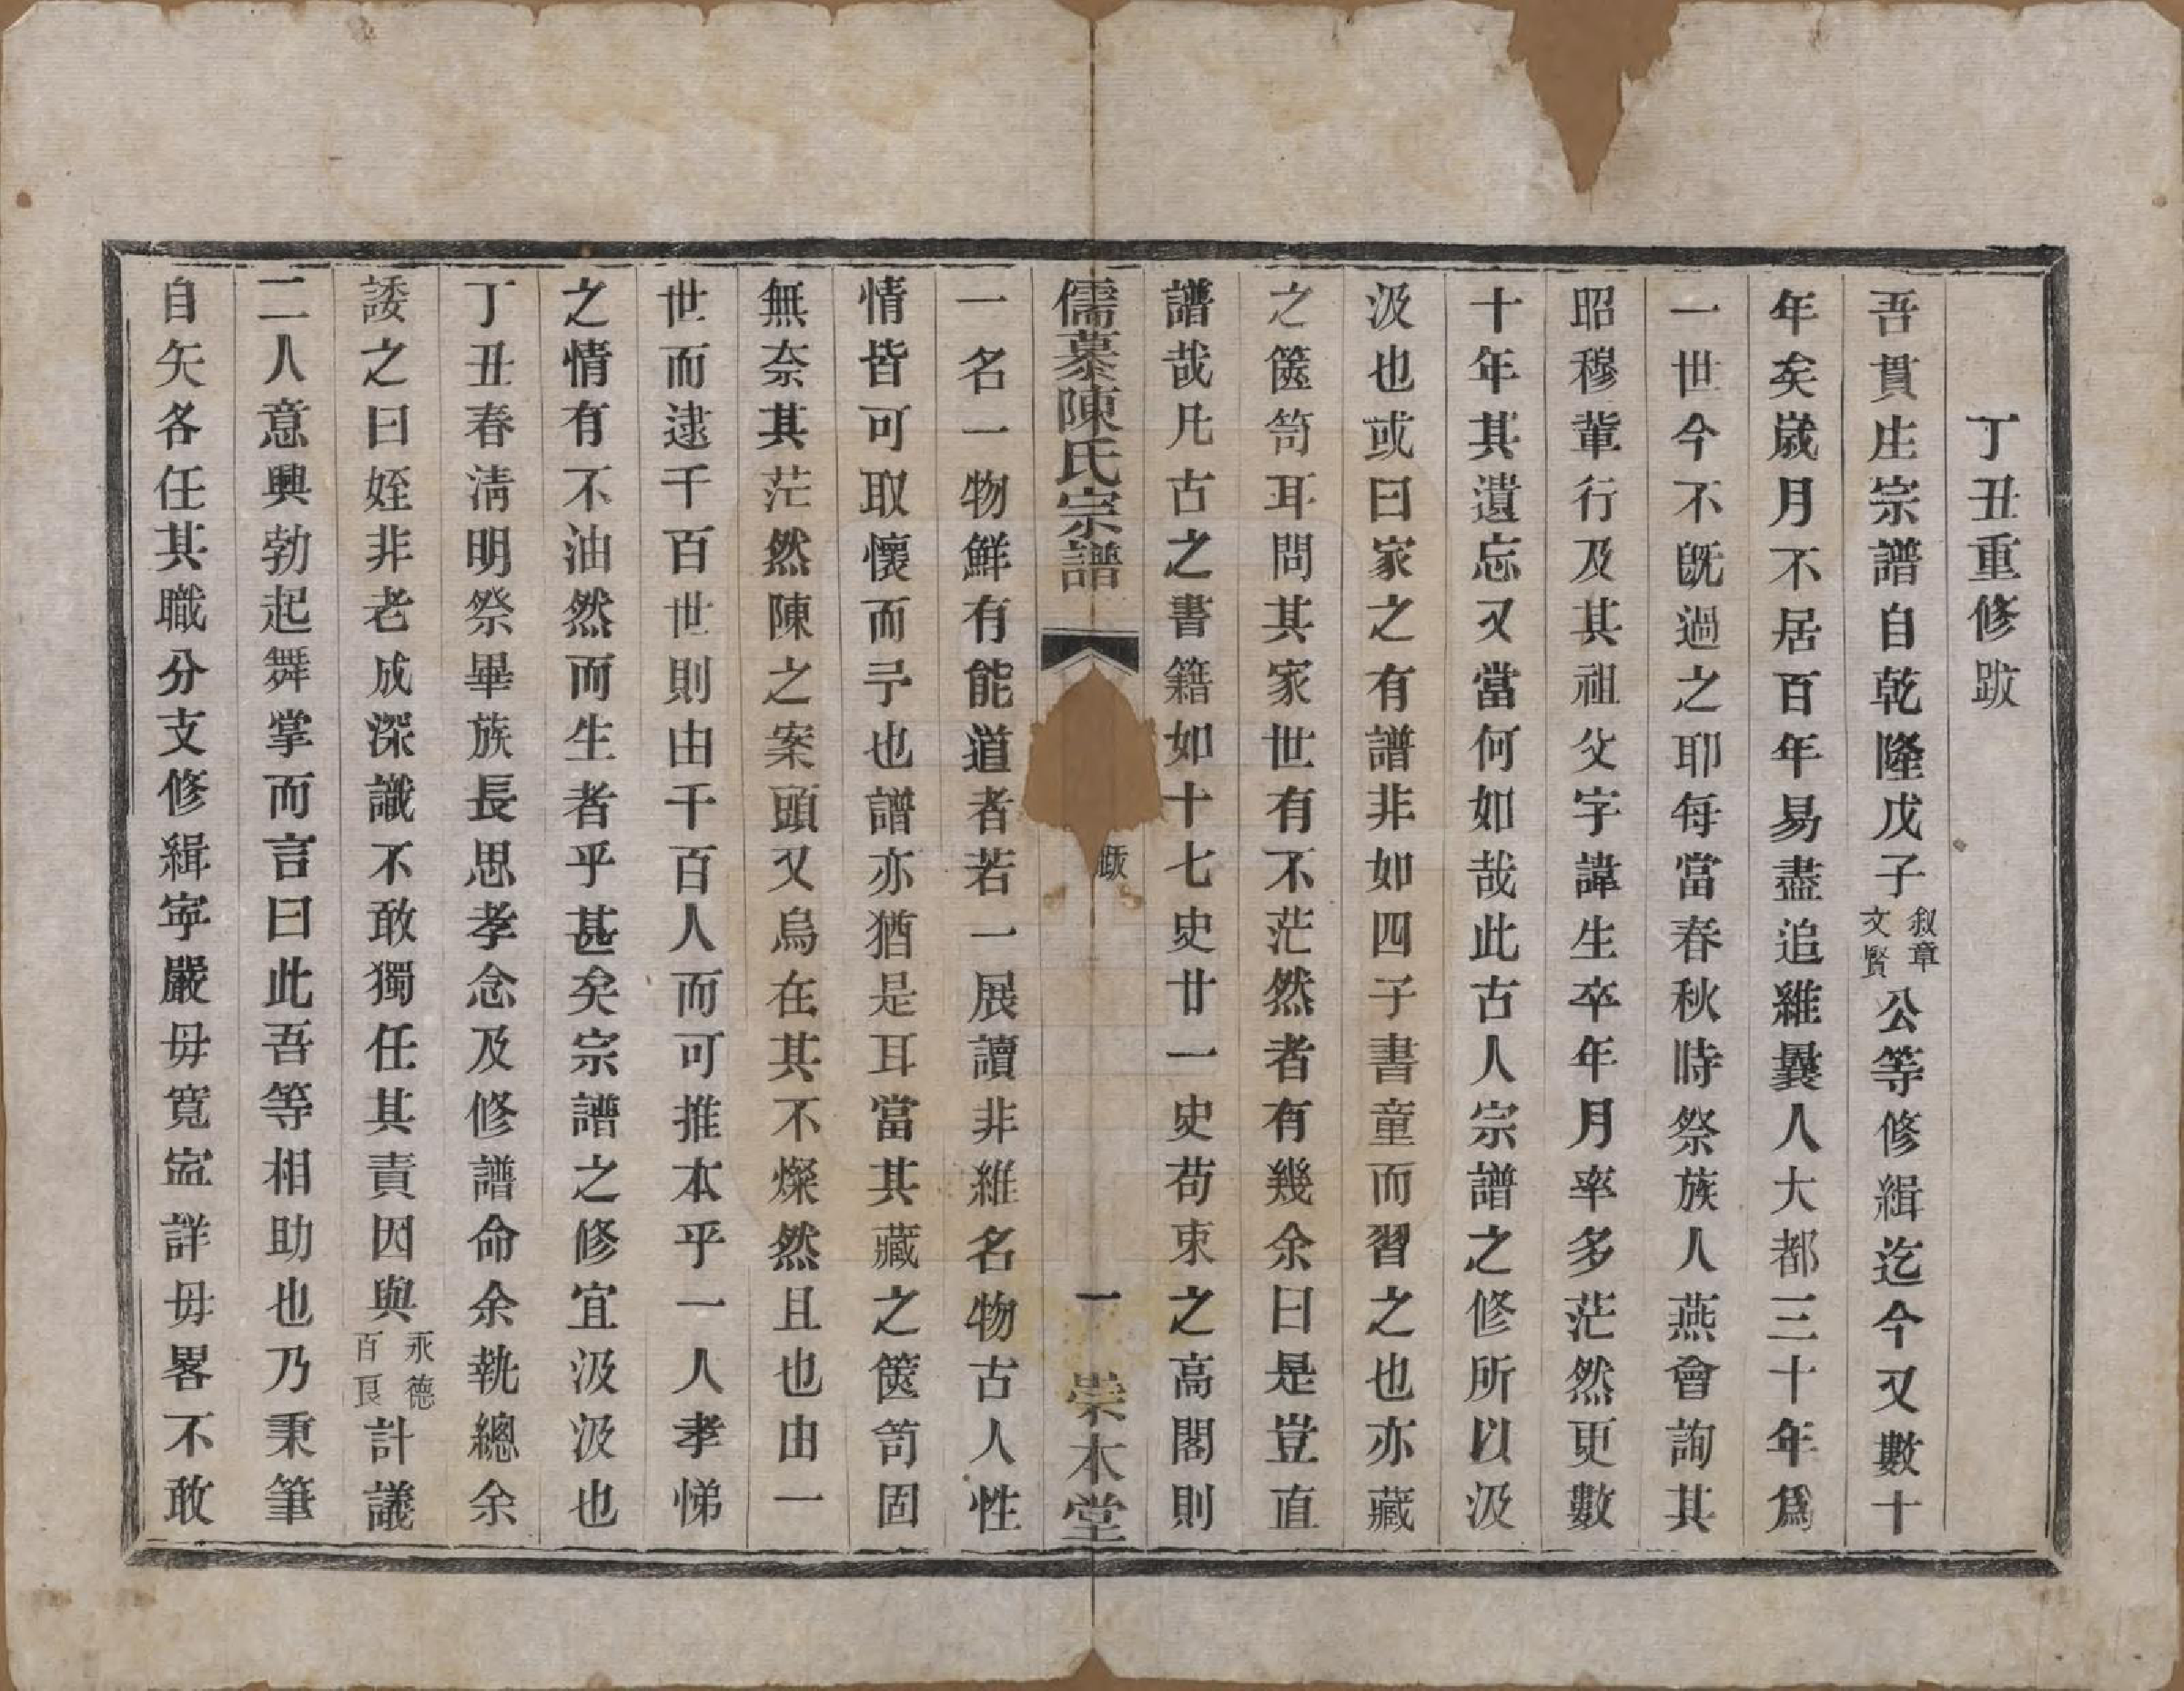 丁丑重修跋
吾貫庄宗譜自乾隆戊子叙章文賢公等修緝迄今又數十
年矣歲月不居百年易盡追維曩人大都三十年爲
一世今不旣過之耶每當春秋時祭族人燕會詢其
昭穆輩行及其祖父字諱生卒年月率多茫然更數
十年其遺忘又當何如哉此古人宗譜之修所以汲
汲也或曰家之有譜非如四子書童而習之也亦藏
之篋笥耳問其家世有不茫然者有幾余曰是豈直
譜哉凡古之書籍如十七史廿一史苟束之高閣則
儒慕陳氏宗譜 跋 一 崇本堂
一名一物鮮有能道者若一展讀非維名物古人性
情皆可取懷而予也譜亦猶是耳當其藏之篋笥固
無奈其茫然陳之案頭又烏在其不燦然且也由一
世而逮千百世則由千百人而可推本乎一人孝悌
之情有不油然而生者乎甚矣宗譜之修宜汲汲也
丁丑春淸明祭畢族長思孝念及修譜命余執總余
諉之曰姪非老成深識不敢獨任其責因與永德百良計議
二人意興勃起舞掌而言曰此吾等相助也乃秉筆
自矢各任其職分支修緝寧嚴毋寬寧詳毋畧不敢